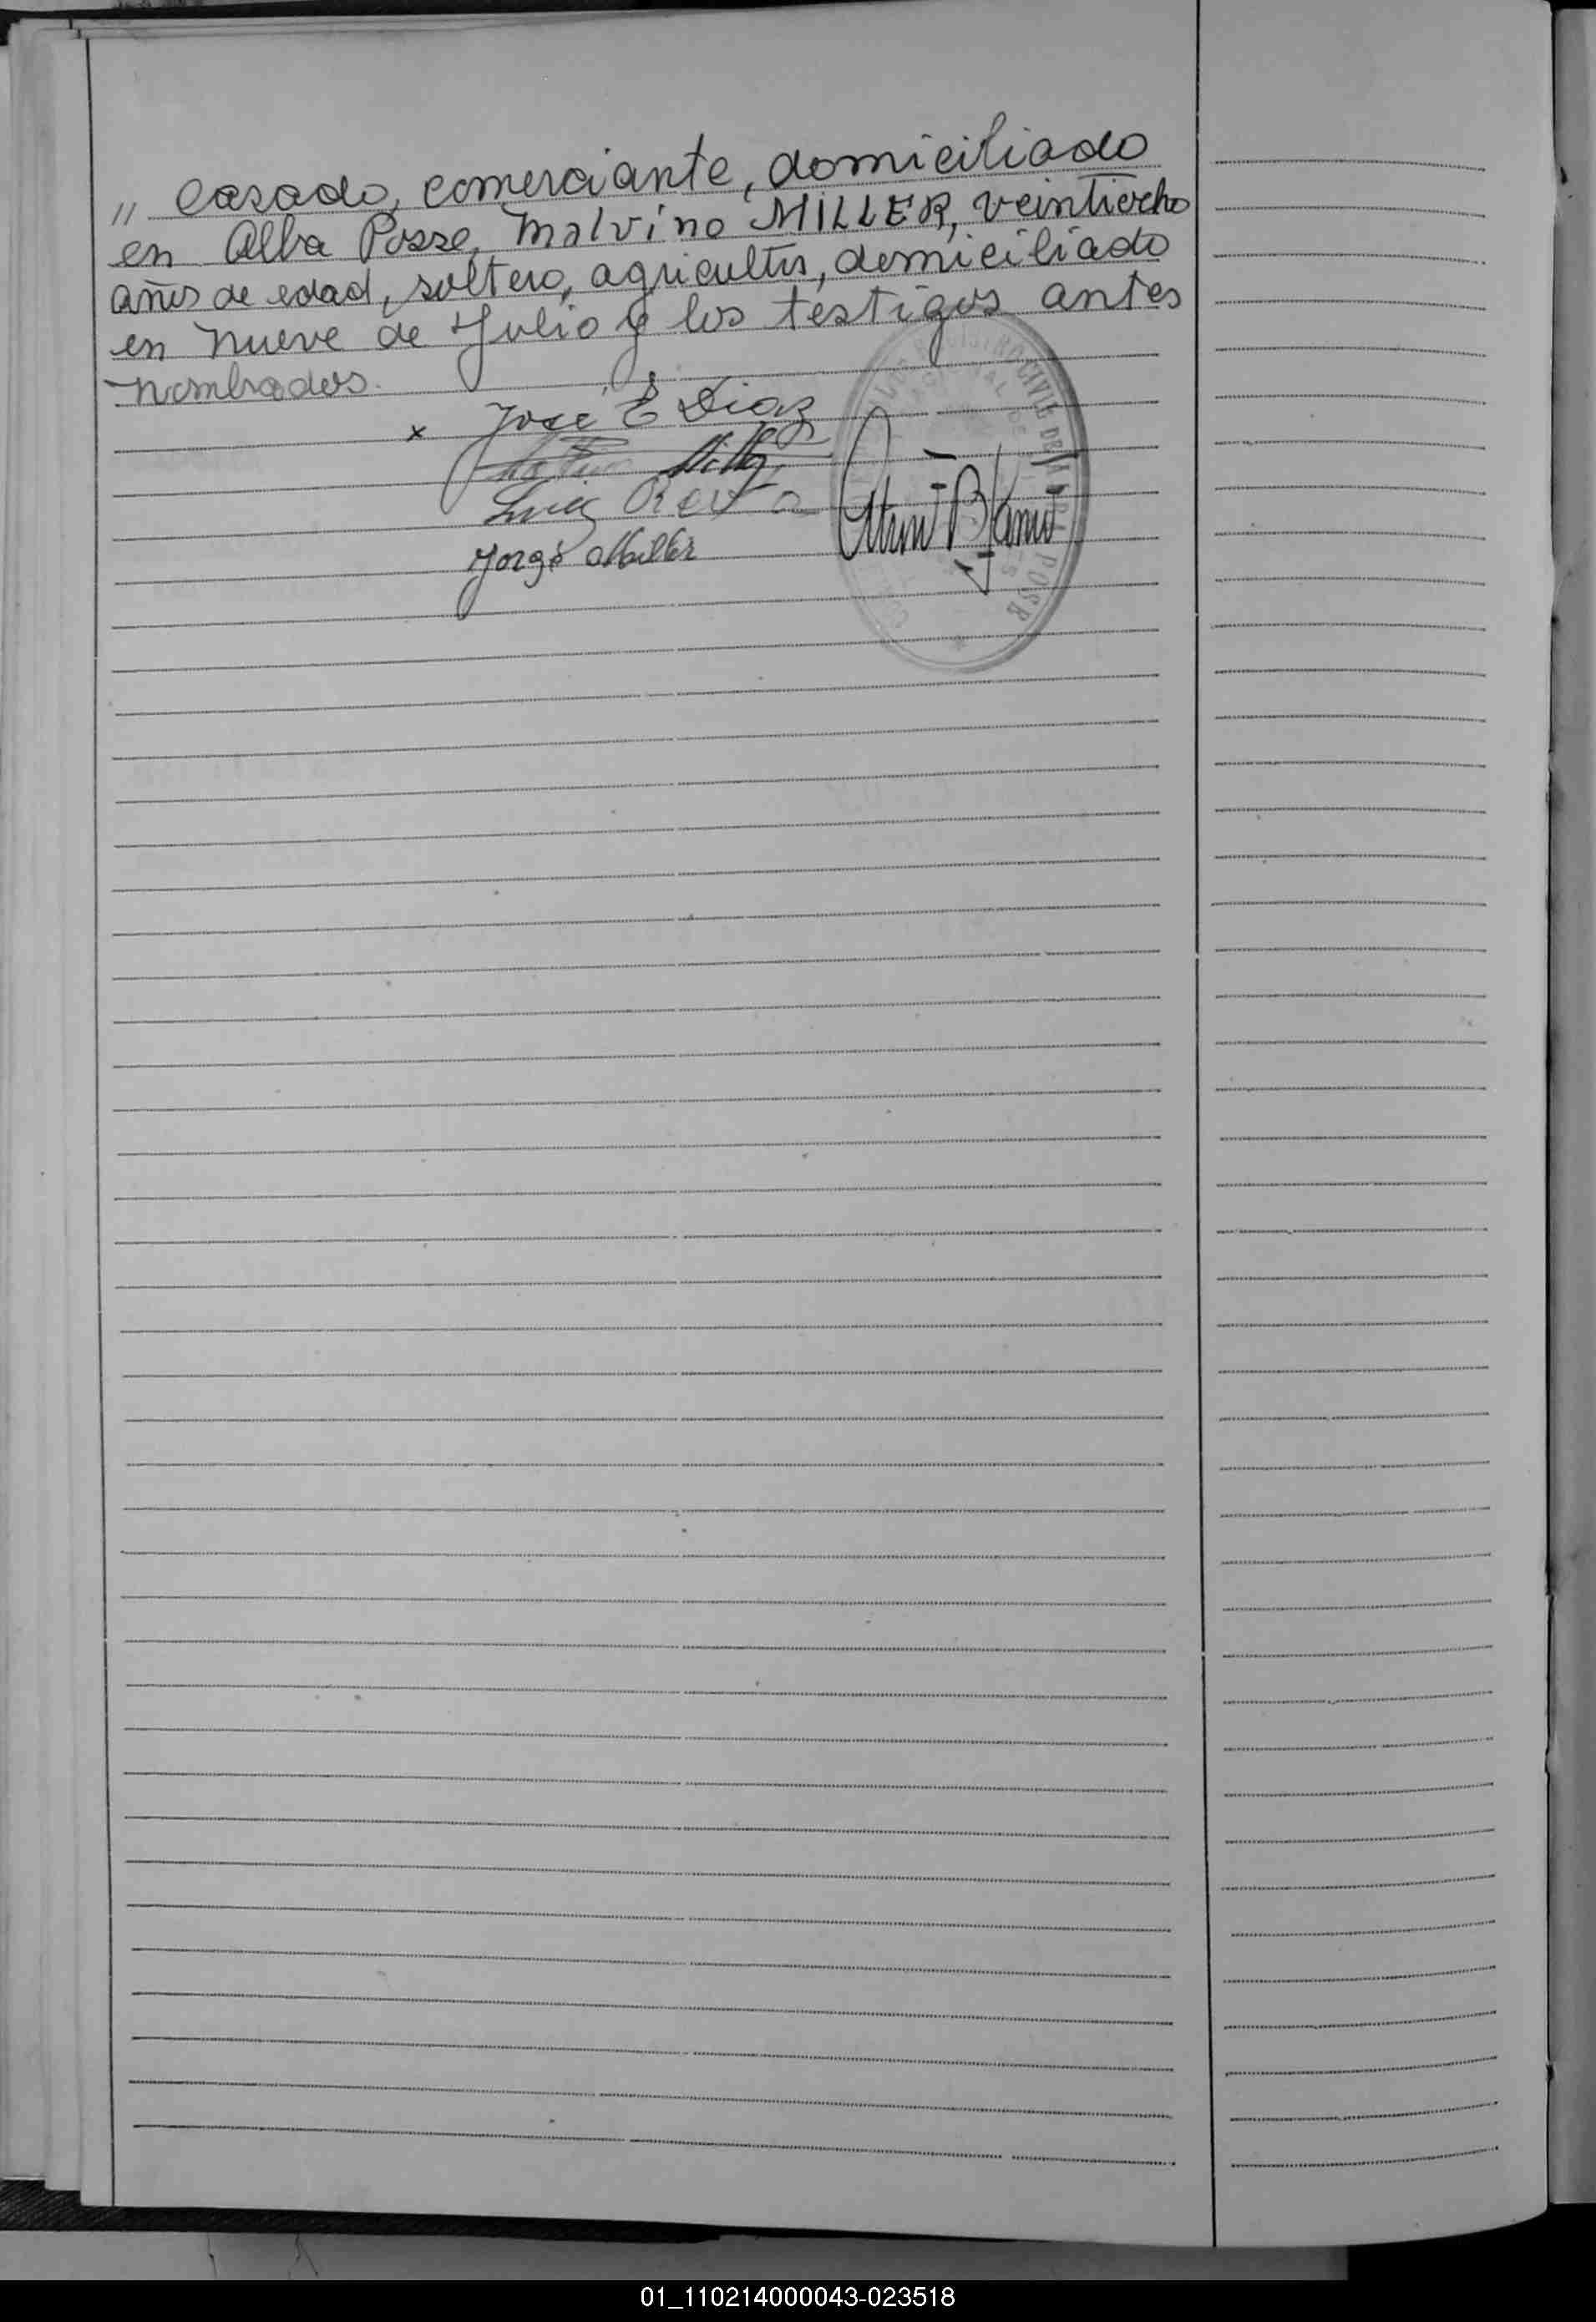 " Casado, comerciante, domiciliado
en Alba Posse, Malvino MILLER, veintiocho
años de edad, soltero, agricultor, domiciliado
en Nueve de Julio y los testigos antes
nombrados.
x José E Diaz
Miller
Luis
Jorge Miller
REGISTRO CIVIL DE ALBA POSSE
01_110214000043-023518